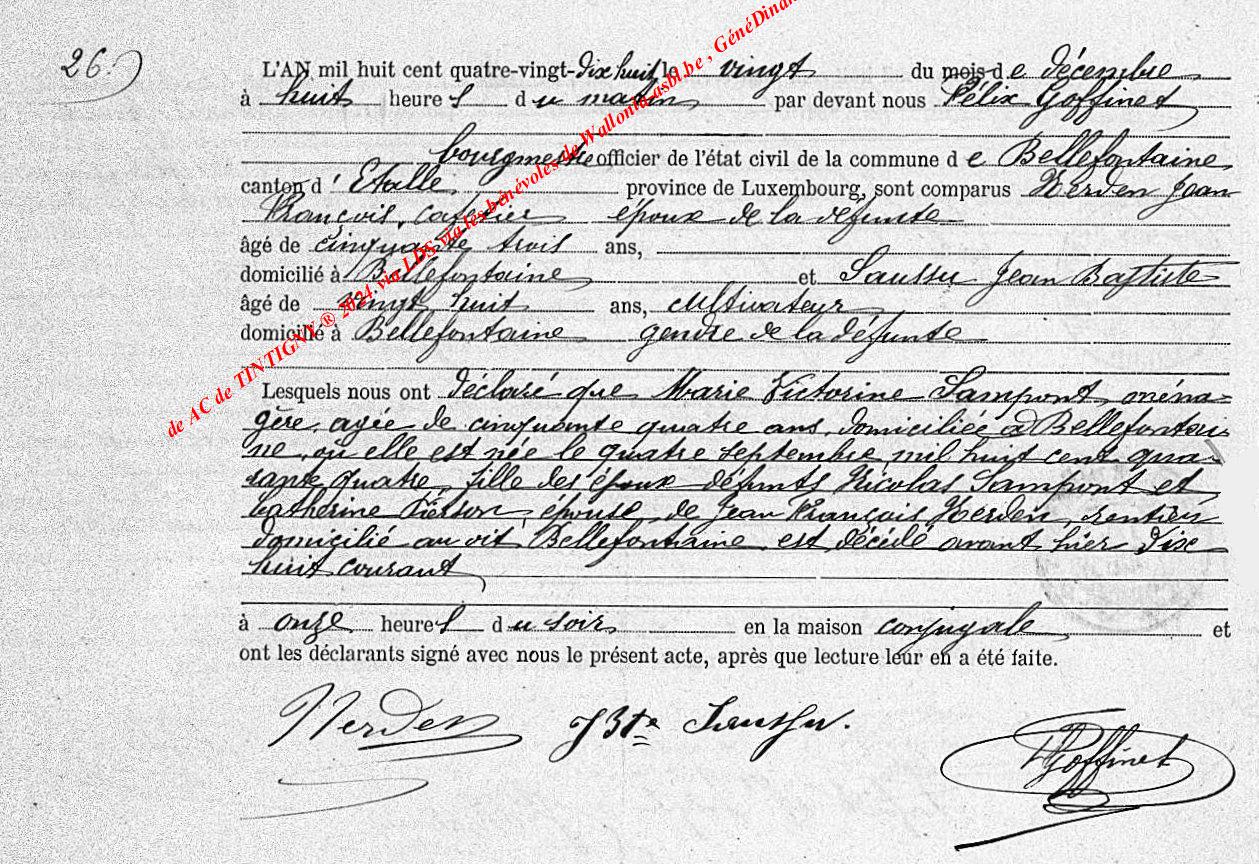 26.
L'AN mil huit cent quatre-vingt-dix huit le vingt du mois de décembre
à huit heures du matin par devant nous Félix Goffinet
bourgmestre officier de l'état civil de la commune de Bellefontaine
canton d'Etalle province de Luxembourg, sont comparus Nerden Jean
François, époux de la défunte
âgé de cinquante trois ans,
domicilié à Bellefontaine et Saussu Jean Baptiste
âgé de vingt huit ans, cultivateur
domicilié à Bellefontaine gendre de la défunte
Lesquels nous ont déclaré que Marie Victorine Lampont, ména-
gère, agée de cinquante quatre ans, domiciliée à Bellefontai-
ne, où elle est née le quatre septembre mil huit cent qua-
rante quatre, fille des époux défunts Nicolas Lampont et
Catherine Pierson, épouse de Jean François Nerden, rentier
domicilié au dit Bellefontaine est décédé avant hier dix
huit courant
à onze heures du soir en la maison conjugale et
ont les déclarants signé avec nous le présent acte, après que lecture leur en a été faite.
Nerden JBte Saussu. Goffinet
de AC de TINTIGNY ® 2024 via LDS via les bénévoles de Wallonia-asbl.be , GénéDinan